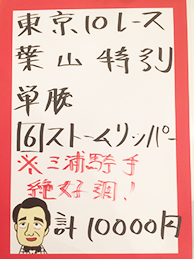 東京10レース
葉山特別
単勝
6ストームリッパー
※三浦騎手
絶好調!
計10000円